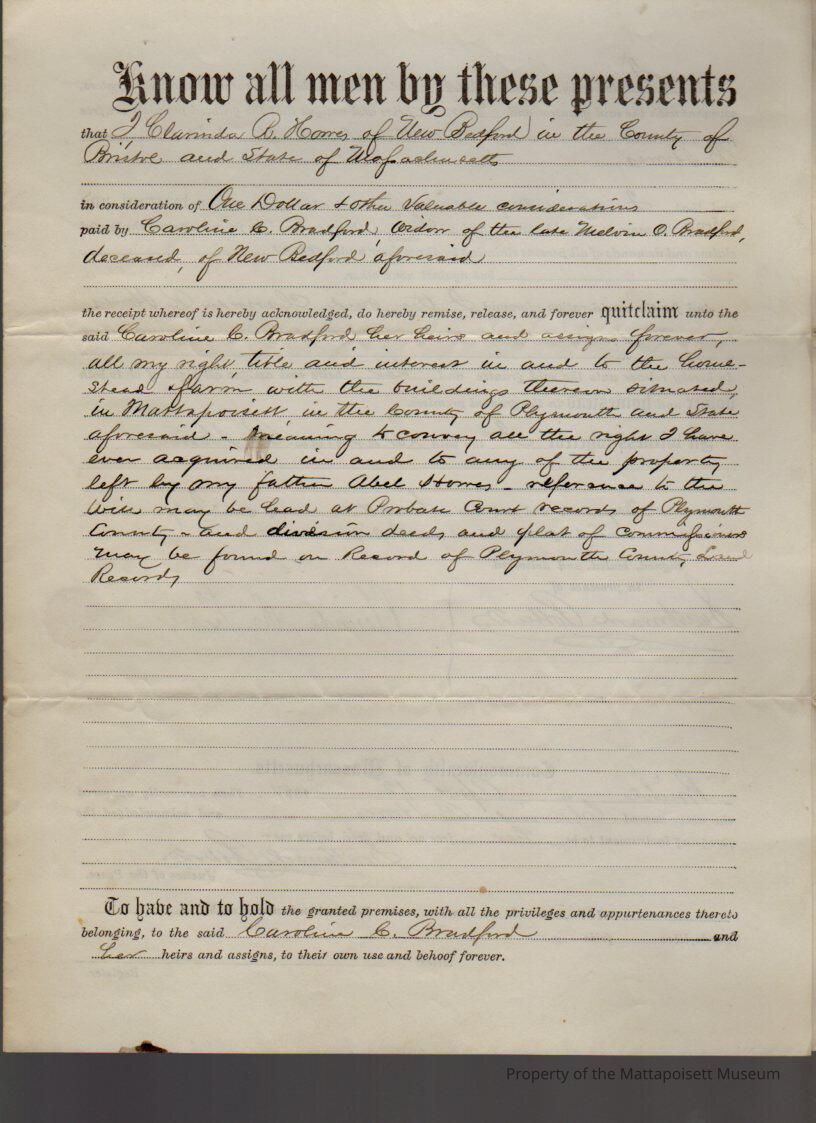 Know all men by these presents
that I Clarinda R. Howes of New Bedford in the County of
Bristol and State of Massachusetts
in consideration of One Dollar & other Valuable considerations
paid by Caroline C. Bradford, widow of the late Melvin O. Bradford,
deceased, of New Bedford aforesaid
the receipt whereof is hereby acknowledged, do hereby remise, release, and forever quitclaim unto the
said Caroline C. Bradford her heirs and assigns forever,
all my right, title and interest in and to the home-
stead farm with the buildings thereon situated,
in Mattapoisett in the County of Plymouth and State
aforesaid - meaning to convey all the right I have
ever acquired in and to any of the property
left by my father Abel Howes - reference to the
Will may be had at Probate Court records of Plymouth
County - and division deeds and plat of commissioners
may be found on Record of Plymouth County Land
Records
To have and to hold the granted premises, with all the privileges and appurtenances thereto
belonging, to the said Caroline C. Bradford and
her heirs and assigns, to their own use and behoof forever.
Property of the Mattapoisett Museum